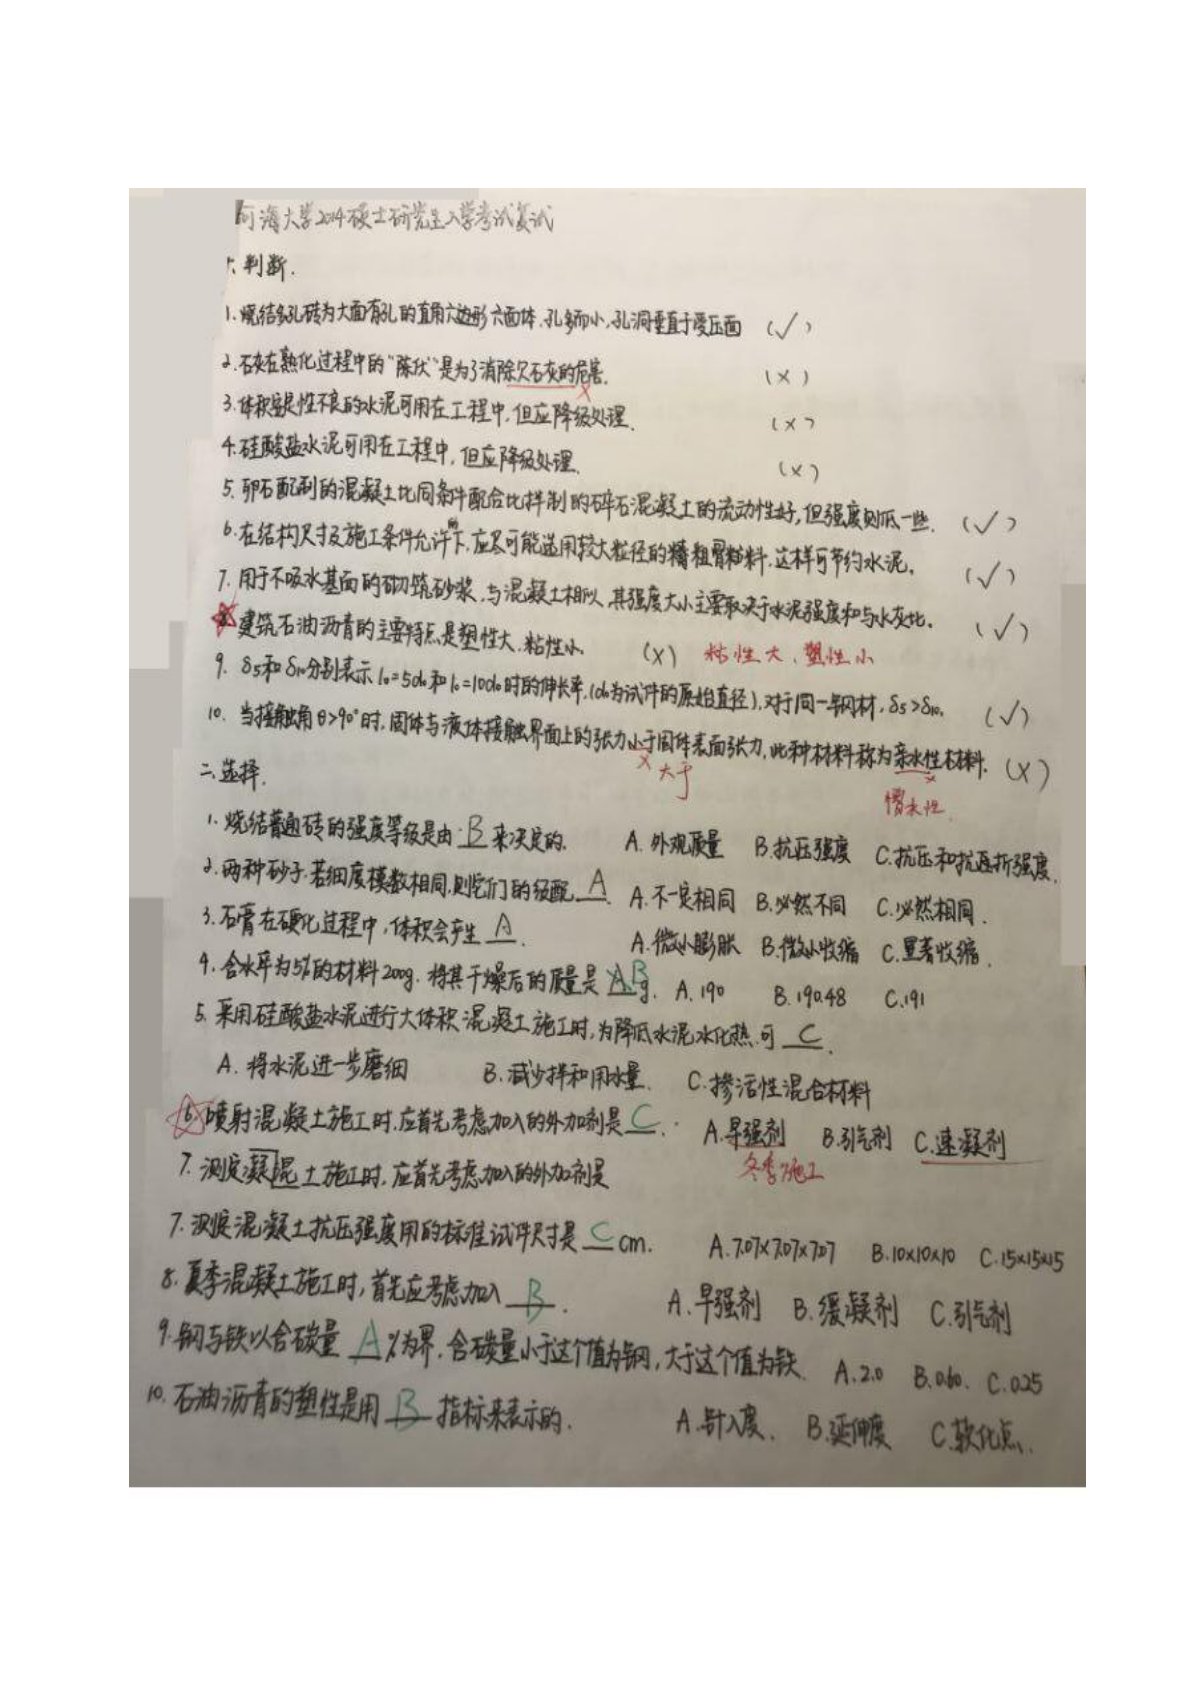 河海大学2014硕士研究生入学考试复试
一、判断.
1.烧结多孔砖为大面有孔的直角六边形六面体,孔多而小,孔洞垂直于受压面 (√)
2.石灰在熟化过程中的"陈伏"是为了消除欠石灰的危害. (×)
×
3.体积安定性不良的水泥可用在工程中,但应降级处理. (×)
4.硅酸盐水泥可用在工程中,但应降级处理. (×)
5.卵石配制的混凝土比同条件配合比拌制的碎石混凝土的流动性好,但强度则低一些. (√)
6.在结构尺寸及施工条件允许的下,应尽可能选用较大粒径的粗骨料,这样可节约水泥. (√)
7.用于不吸水基面的砌筑砂浆,与混凝土相似,其强度大小主要取决于水泥强度和与水灰比. (√)
8.建筑石油沥青的主要特点是塑性大,粘性小. (×) 粘性大、塑性小
9. δ5和δ10分别表示l0=5d0和l0=10d0时的伸长率,(d0为试件的原始直径),对于同一钢材,δ5>δ10. (√)
10.当接触角θ>90°时,固体与液体接触界面上的张力小于固体表面张力,此种材料称为亲水性材料. (×)
× 大于 × 憎水性
二、选择.
1.烧结普通砖的强度等级是由 B 来决定的. A.外观质量 B.抗压强度 C.抗压和抗折强度.
2.两种砂子,若细度模数相同,则它们的级配 A . A.不一定相同 B.必然不同 C.必然相同.
3.石膏在硬化过程中,体积会产生 A . A.微小膨胀 B.微小收缩 C.显著收缩.
4.含水率为5%的材料200g.将其干燥后的质量是 A B g. A.190 B.190.48 C.191
5.采用硅酸盐水泥进行大体积混凝土施工时,为降低水泥水化热,可 C .
A.将水泥进一步磨细 B.减少拌和用水量. C.掺活性混合材料
6.喷射混凝土施工时,应首先考虑加入的外加剂是 C . A.早强剂 B.引气剂 C.速凝剂
冬季施工
7.测定凝混土施工时,应首先考虑加入的外加剂是
7.测定混凝土抗压强度用的标准试件尺寸是 C cm. A.7.07×7.07×7.07 B.10×10×10 C.15×15×15
8.夏季混凝土施工时,首先应考虑加入 B . A.早强剂 B.缓凝剂 C.引气剂
9.钢与铁以含碳量 A %为界,含碳量小于这个值为钢,大于这个值为铁. A.2.0 B.0.60. C.0.25
10.石油沥青的塑性是用 B 指标来表示的. A.针入度. B.延伸度 C.软化点.